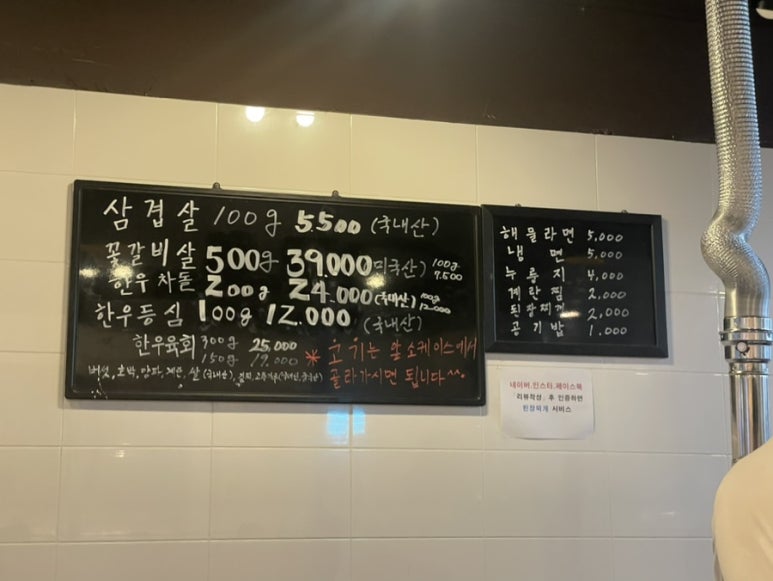 삼겹살 100g 5500 (국내산)
꽃갈비살 500g 39.000 미국산) 100g 7.500
한우차돌 200g 24.000 (국내산) 100g 12.000
한우등심 100g 12.000 (국내산)
한우육회 300g 25.000
150g 19.000
버섯, 호박, 양파, 계란, 쌀 (국내산), 김치, 고추가루(국내산, 중국산)
* 고기는 앞 쇼케이스에서
골라가시면 됩니다 ^^.
해물라면 5.000
냉면 5.000
누룽지 4.000
계란찜 2.000
된장찌개 2.000
공기밥 1.000
네이버.인스타.페이스북
「리뷰작성」 후 인증하면
된장찌개 서비스